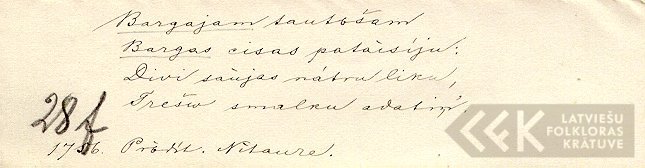 Bargajam tautōšam
Bargas cisas patàisíju:
Divi sàujas nátru liku,
Trešu smalku adatiņ'.
28f
1736. Prōdt. Nitaure.
LATVIEŠU
FOLKLORAS
KRĀTUVE